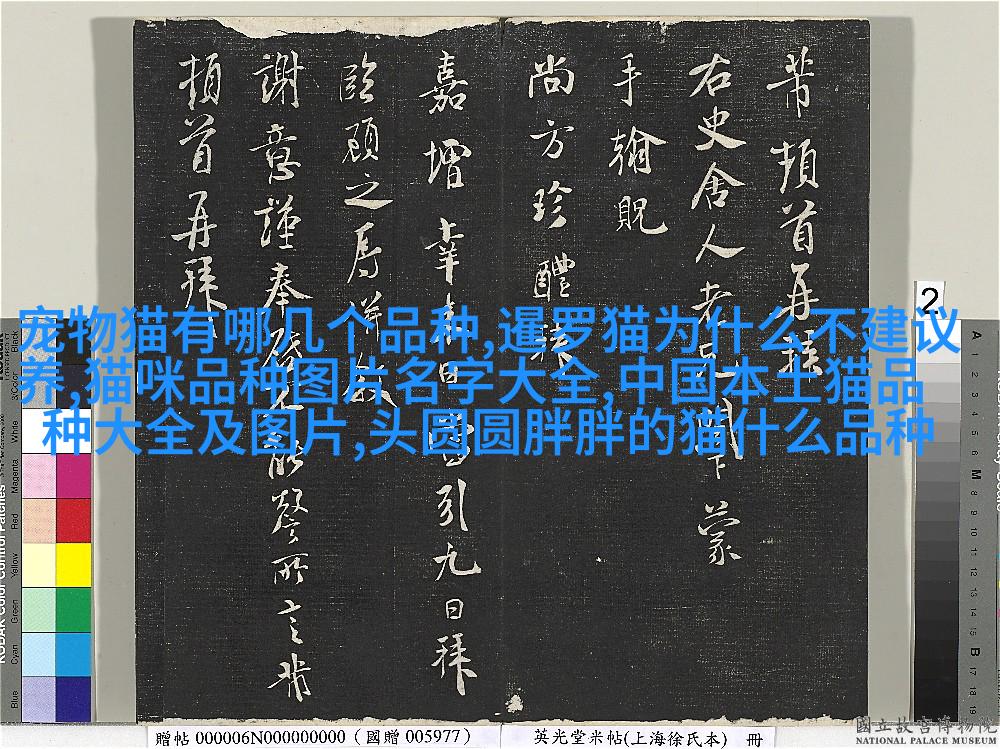 芾頓首再拜
右史舍人老下蒙
手翰貺
尚方珍醴
嘉增幸日引九日拜
臨顧之辱
謝意謹奉能罄所言芾
頓首再拜
宠物猫有哪几个品种,暹罗猫为什么不建议
养,猫咪品种图片名字大全,中国本土猫品
种大全及图片,头圆圆胖胖的猫什么品种
2
贈帖 000006N000000000 (國贈 005977)
英光堂米帖(上海徐氏本) 冊
國立故宮博物院
NATIONAL PALACE MUSEUM